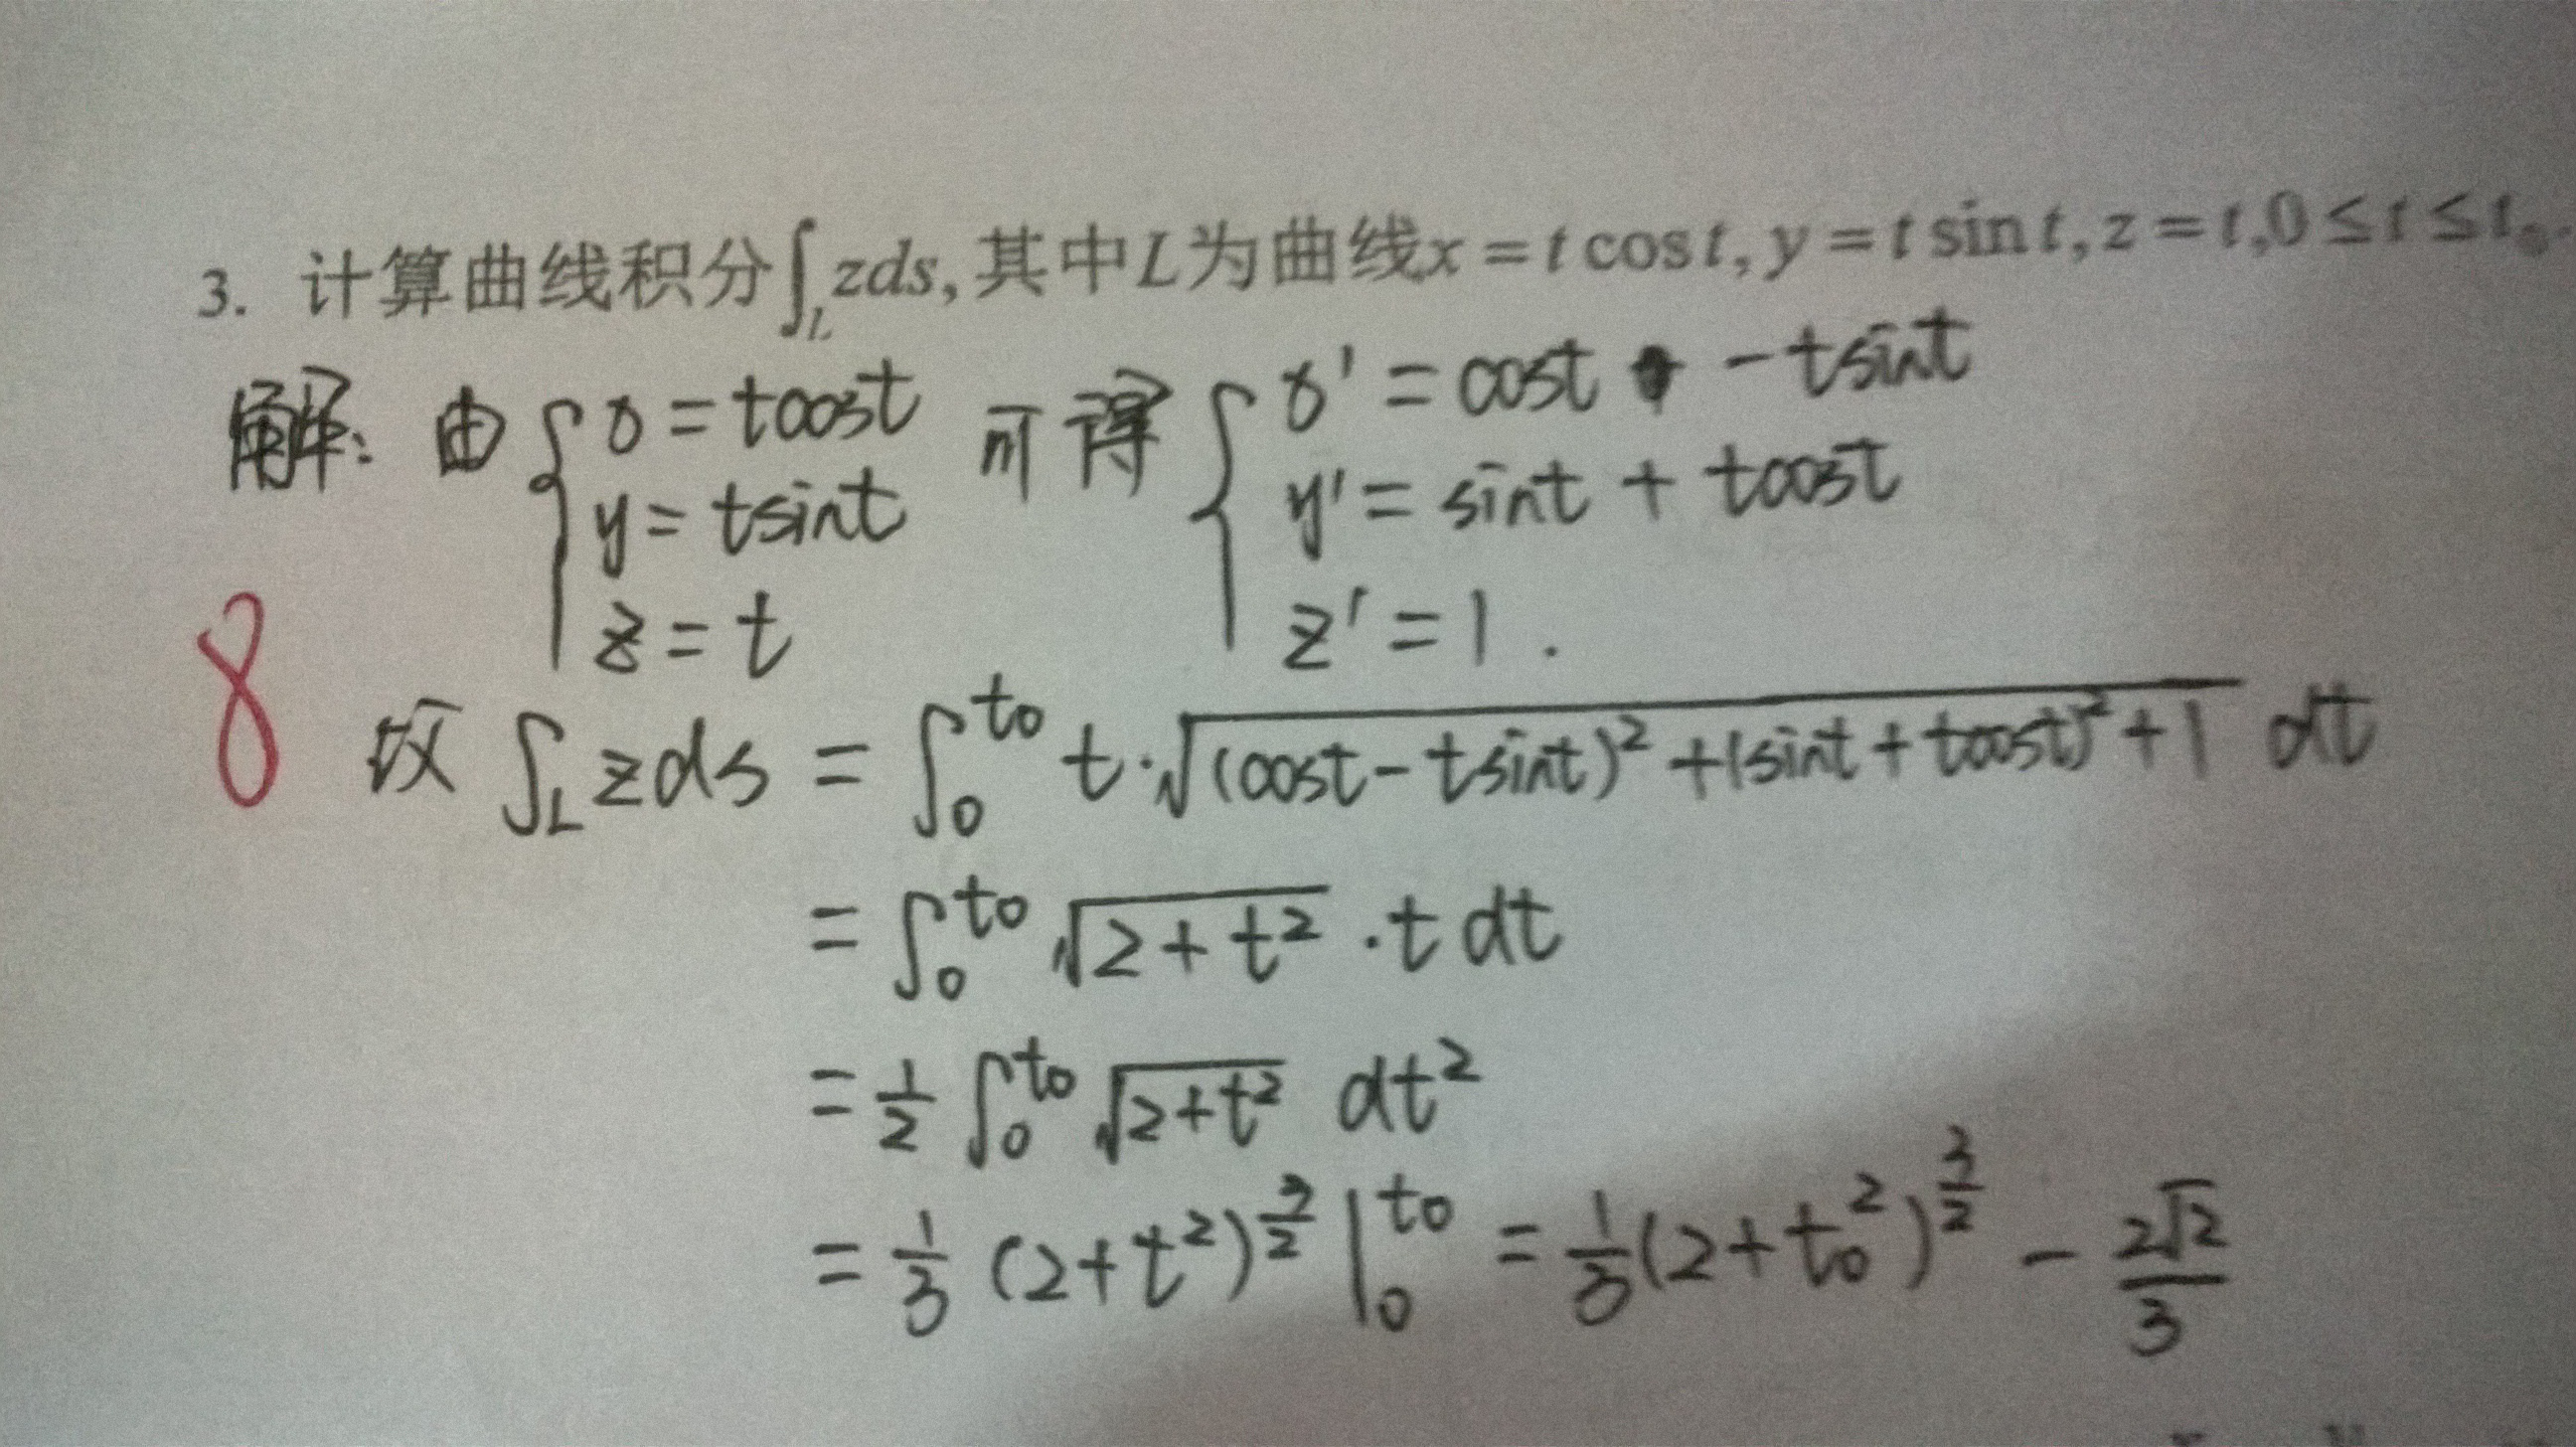 3. 计算曲线积分∫_L zds, 其中L为曲线x = t cos t, y = t sin t, z = t, 0 ≤ t ≤ t₀.
解: 由 { x = tcost 可得 { x' = cost - tsint
y = tsint y' = sint + tcost
z = t z' = 1 .
8
故 ∫_L zds = ∫₀^t₀ t·√((cost - tsint)² + (sint + tcost)² + 1) dt
= ∫₀^t₀ √(2 + t²) · t dt
= 1/2 ∫₀^t₀ √(2+t²) dt²
= 1/3 (2+t²)^(3/2) |₀^t₀ = 1/3 (2+t₀²)^(3/2) - 2√2/3